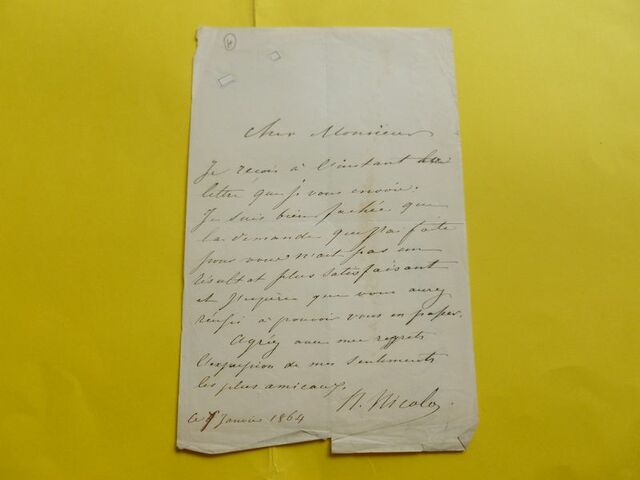 4
Cher Monsieur
Je recois à l'instant
lettre que je vous envoie.
Je suis bien fachée que
la demande que j'ai faite
pour vous n'ait pas un
résultat plus satisfaisant
et j'espère que vous aurez
réussi à pouvoir vous en passer.
Agréez avec mes regrets
l'expression de mes sentiments
les plus amicaux.
N. Nicolo
Ce Janvier 1864